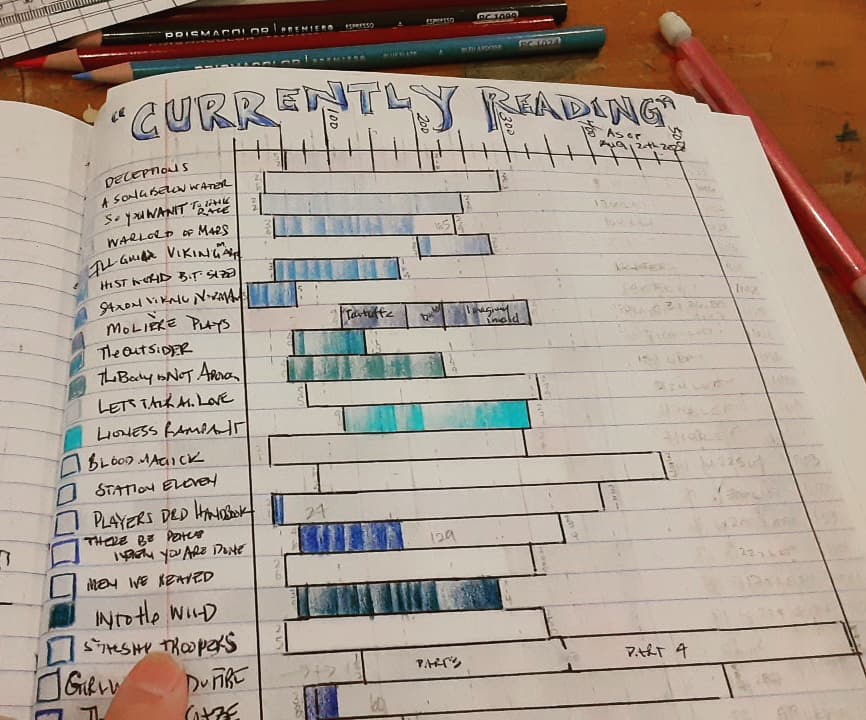 PRISMACOLOR PREMIERE ESPRESSO ESPRESSO PC 1099
PRISMACOLOR PREMIERE BLEU ARDOISE PC 1024
"CURRENTLY READING"
100 200 300 400 50
As of
Aug 24th
DECEPTIONS
A SONG BELOW WATER
SO YOU WANT TO TALK
RACE
WARLORD OF MARS 165
ILL GUIDE VIKING
HIST WORLD BIT SIZED
SAXON VIKING NORMAN
MOLIÈRE PLAYS Tartuffe Imaginary
Invalid
The OUTSIDER
The Body is NOT APOLOGY
LETS TALK AB. LOVE
LIONESS RAMPANT
BLOOD MAGICK
STATION ELEVEN
PLAYERS D&D HANDBOOK 24
THERE BE PEACE
WHEN YOU ARE DONE 129
MEN WE REAPED
INTO the WILD
STARSHIP TROOPERS
PART 3 PART 4
GIRL FIRE
60